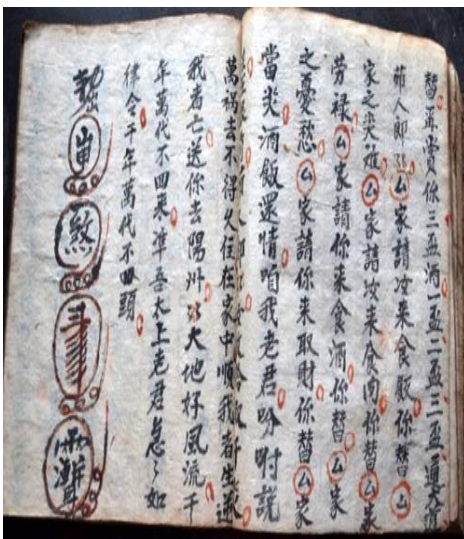 替軍賞你三盃酒一盃二盃三盃一連
茆人郎 厶家請汝來食飯你替厶
家之災难厶家請汝來食肉你替厶家
劳禄厶家請你来食酒你替厶家
之憂愁厶家請你来取財你替厶家
當災酒飯還情咱我老君吩咐説
萬禍去不得久住在家中順我者生逆
我者亡送你去陽州 大地好風流千
年萬代不回来準吾太上老君急〻如
律令千年萬代不回頭
煞